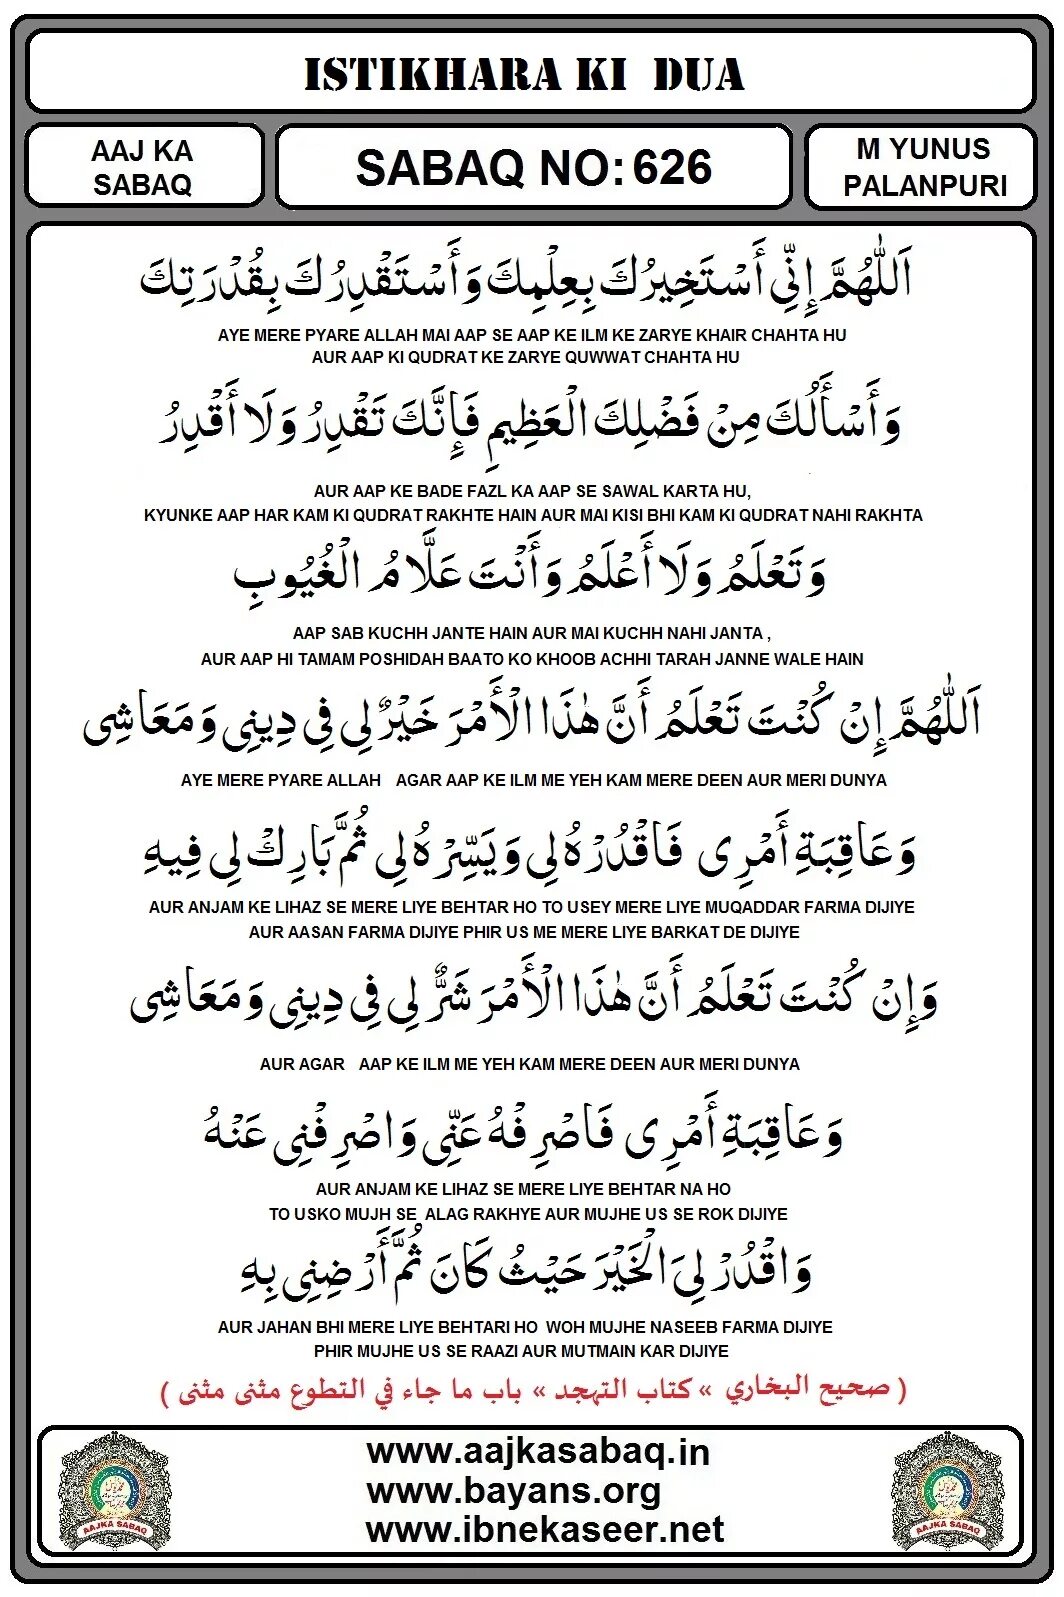 ISTIKHARA KI DUA
AAJ KA
SABAQ
SABAQ NO: 626
M YUNUS
PALANPURI
اَللّٰهُمَّ إِنِّي أَسْتَخِيرُكَ بِعِلْمِكَ وَأَسْتَقْدِرُكَ بِقُدْرَتِكَ
AYE MERE PYARE ALLAH MAI AAP SE AAP KE ILM KE ZARYE KHAIR CHAHTA HU
AUR AAP KI QUDRAT KE ZARYE QUWWAT CHAHTA HU
وَأَسْأَلُكَ مِنْ فَضْلِكَ الْعَظِيمِ فَإِنَّكَ تَقْدِرُ وَلَا أَقْدِرُ
AUR AAP KE BADE FAZL KA AAP SE SAWAL KARTA HU,
KYUNKE AAP HAR KAM KI QUDRAT RAKHTE HAIN AUR MAI KISI BHI KAM KI QUDRAT NAHI RAKHTA
وَتَعْلَمُ وَلَا أَعْلَمُ وَأَنْتَ عَلَّامُ الْغُيُوبِ
AAP SAB KUCHH JANTE HAIN AUR MAI KUCHH NAHI JANTA ,
AUR AAP HI TAMAM POSHIDAH BAATO KO KHOOB ACHHI TARAH JANNE WALE HAIN
اَللّٰهُمَّ إِنْ كُنْتَ تَعْلَمُ أَنَّ هٰذَا الْأَمْرَ خَيْرٌ لِي فِي دِينِي وَمَعَاشِي
AYE MERE PYARE ALLAH AGAR AAP KE ILM ME YEH KAM MERE DEEN AUR MERI DUNYA
وَعَاقِبَةِ أَمْرِي فَاقْدُرْهُ لِي وَيَسِّرْهُ لِي ثُمَّ بَارِكْ لِي فِيهِ
AUR ANJAM KE LIHAZ SE MERE LIYE BEHTAR HO TO USEY MERE LIYE MUQADDAR FARMA DIJIYE
AUR AASAN FARMA DIJIYE PHIR US ME MERE LIYE BARKAT DE DIJIYE
وَإِنْ كُنْتَ تَعْلَمُ أَنَّ هٰذَا الْأَمْرَ شَرٌّ لِي فِي دِينِي وَمَعَاشِي
AUR AGAR AAP KE ILM ME YEH KAM MERE DEEN AUR MERI DUNYA
وَعَاقِبَةِ أَمْرِي فَاصْرِفْهُ عَنِّي وَاصْرِفْنِي عَنْهُ
AUR ANJAM KE LIHAZ SE MERE LIYE BEHTAR NA HO
TO USKO MUJH SE ALAG RAKHYE AUR MUJHE US SE ROK DIJIYE
وَاقْدُرْ لِيَ الْخَيْرَ حَيْثُ كَانَ ثُمَّ أَرْضِنِي بِهِ
AUR JAHAN BHI MERE LIYE BEHTARI HO WOH MUJHE NASEEB FARMA DIJIYE
PHIR MUJHE US SE RAAZI AUR MUTMAIN KAR DIJIYE
( صحيح البخاري » كتاب التهجد » باب ما جاء في التطوع مثنى مثنى )
www.aajkasabaq.in
www.bayans.org
www.ibnekaseer.net
AAJKA SABAQ
AAJKA SABAQ